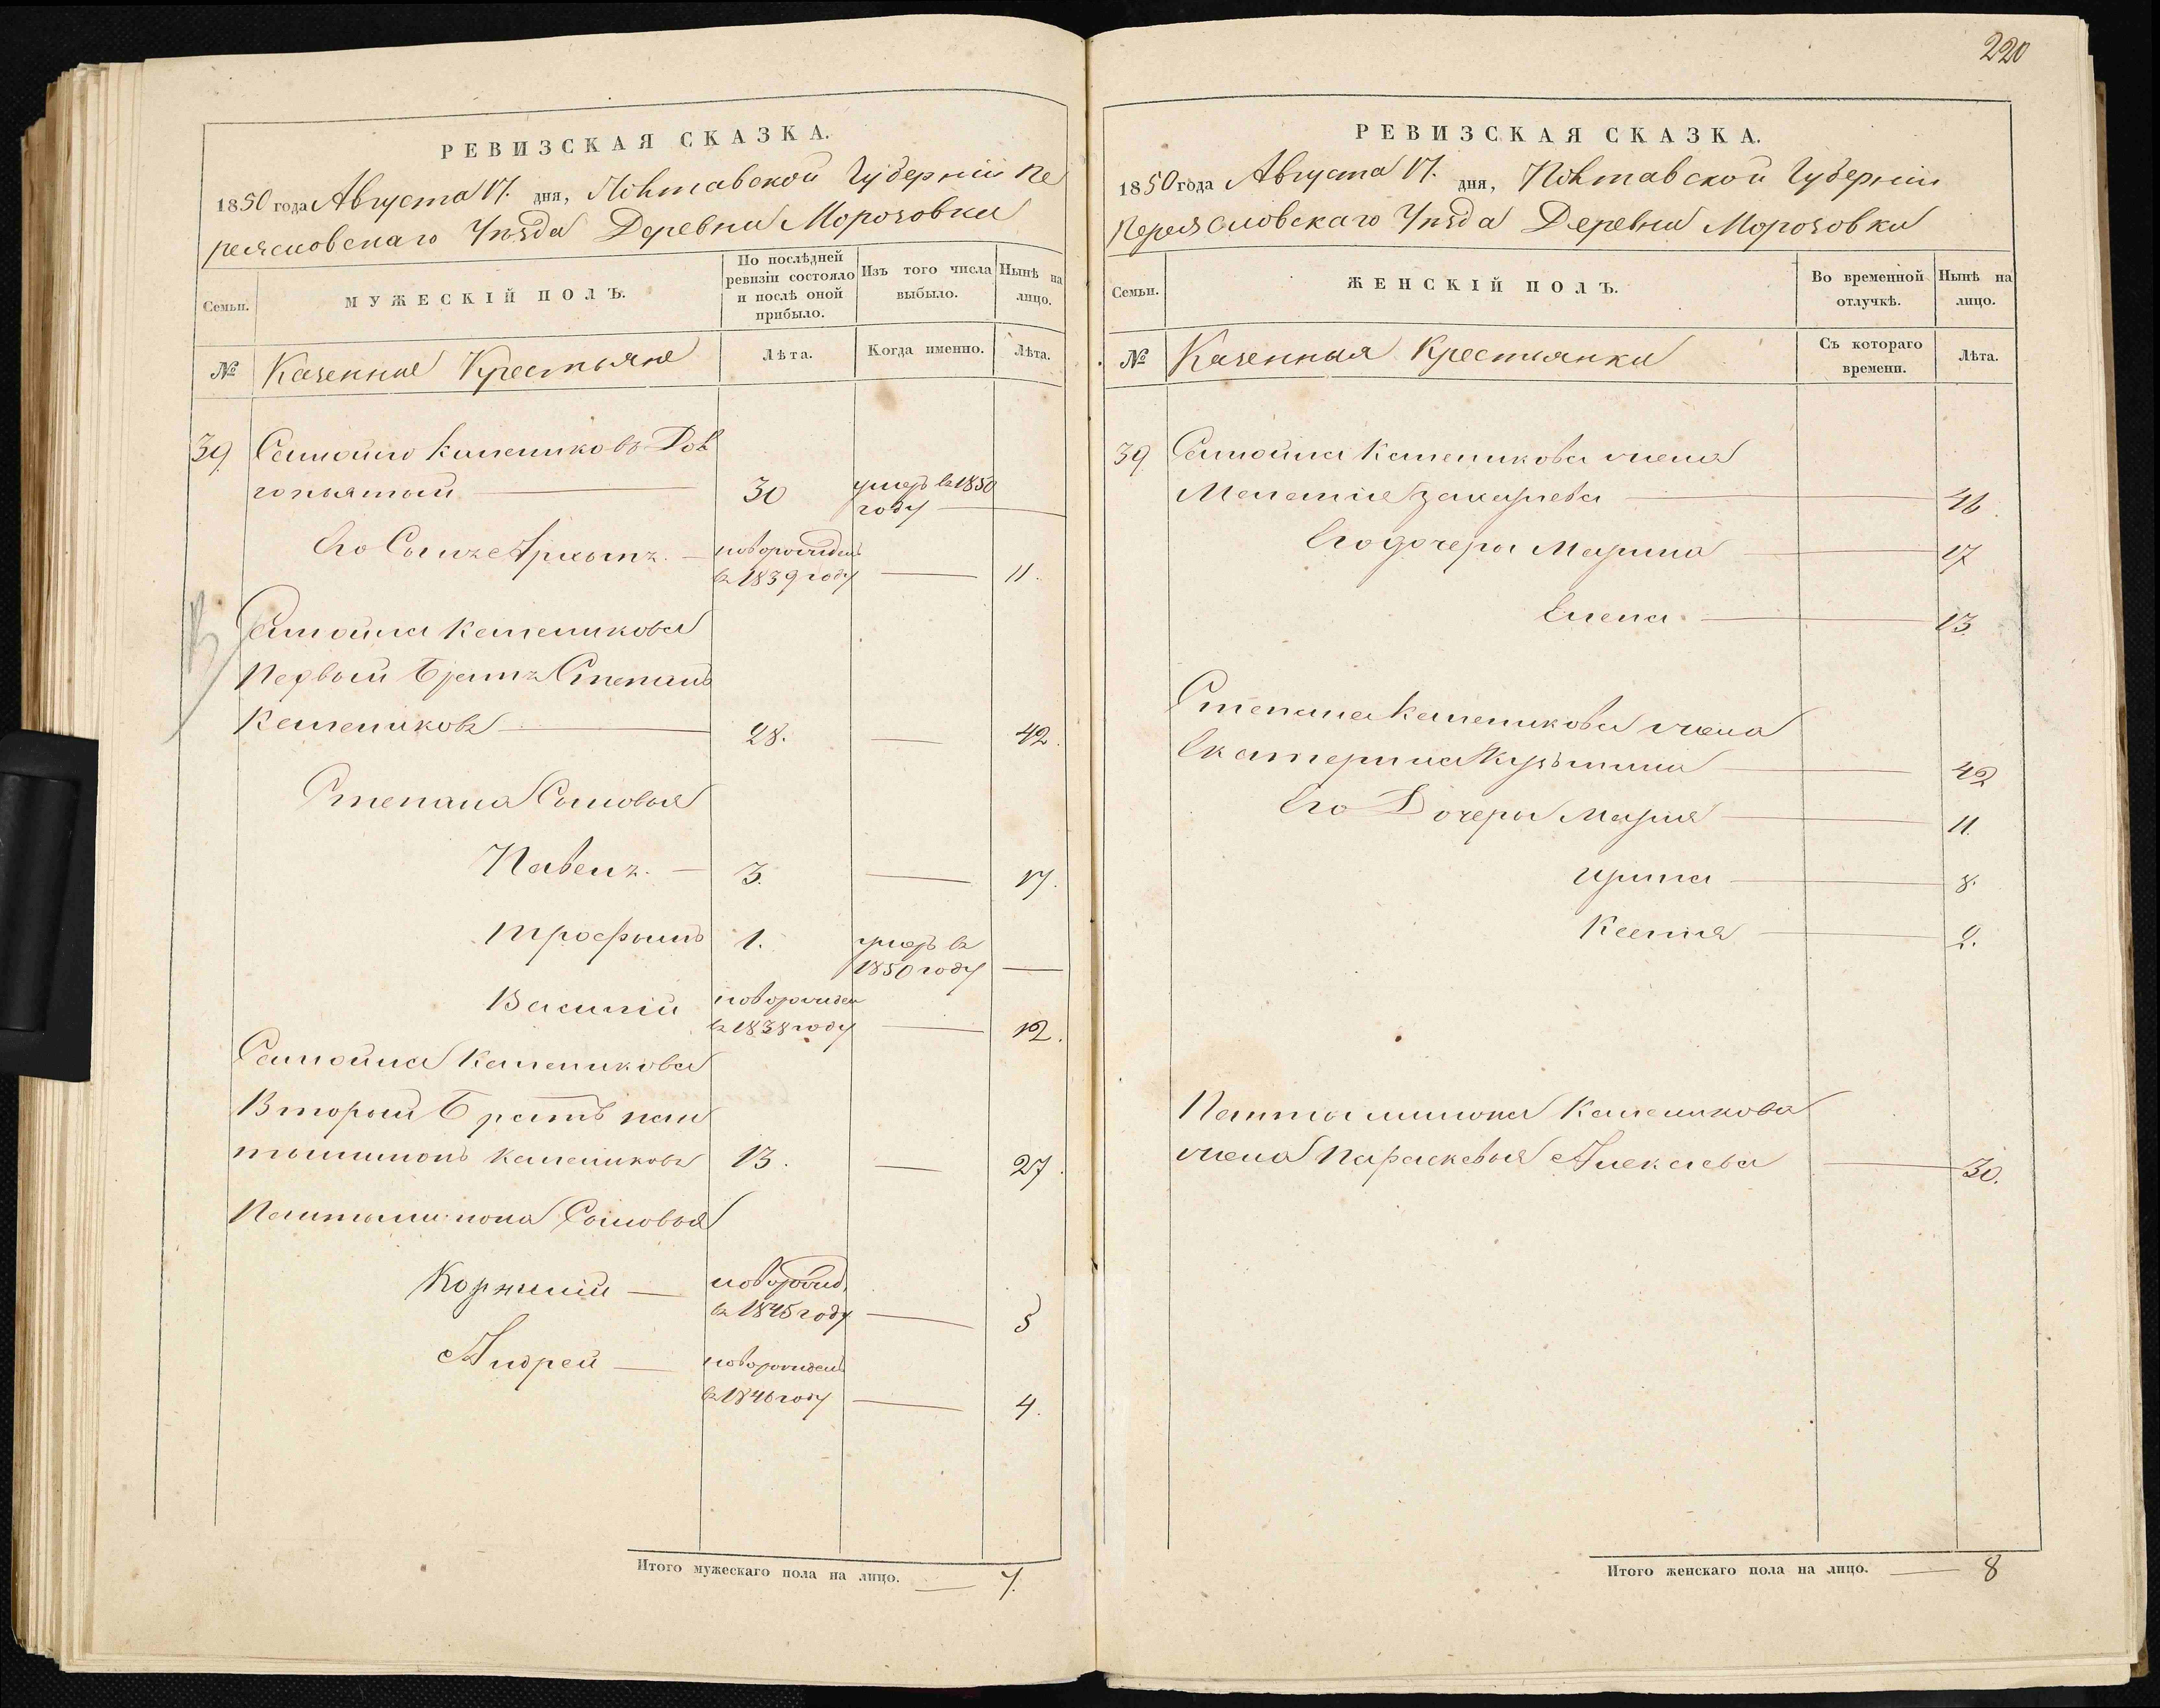 РЕВИЗСКАЯ СКАЗКА.
1850 года Августа 17. дня, Полтавской Губерніи Пе
реясловскаго Уѣзда Деревни Морозовки
Семьи.
МУЖЕСКІЙ ПОЛЪ.
По послѣдней ревизіи состояло и послѣ оной прибыло.
Изъ того числа выбыло.
Нынѣ на лицо.
№ Казенные Крестьяне Лѣта. Когда именно. Лѣта.
39 Самойло Калениковъ Дов
гопятой 30 умеръ въ 1850
году
Его Сынъ Архипъ. новорожденъ
въ 1839 году 11.
Самойла Каленикова
Первый Братъ Степанъ
Калениковъ 28. 42.
Степана Сыновья
Павелъ. 3. 17.
Трофимъ 1. умеръ въ
1850 году
Василій новорожден
въ 1838 году 12.
Самойла Каленикова
Второй Братъ Пан
толимонъ Калениковъ 13. 27.
Пантолимона Сыновья
Корнилій новорожд.
въ 1845 году 5
Андрей новорожденъ
въ 1846 году 4.
Итого мужескаго пола на лицо. 7.
220
РЕВИЗСКАЯ СКАЗКА.
1850 года Августа 17. дня, Полтавской Губерніи
Переясловскаго Уѣзда Деревни Морозовки
Семьи.
ЖЕНСКІЙ ПОЛЪ.
Во временной отлучкѣ.
Нынѣ на лицо.
№ Казенныя Крестьянки Съ котораго времени. Лѣта.
39 Самойла Каленикова жена
Меланія Захарьева 46.
Его дочери Марина 17
Елена 13.
Степана Каленикова жена
Екатерина Кузьмина 42
Его Дочери Марія 11.
Ирина 8.
Ксенія 2.
Пантолимона Каленикова
жена Параскевья Алексѣева 30.
Итого женскаго пола на лицо. 8